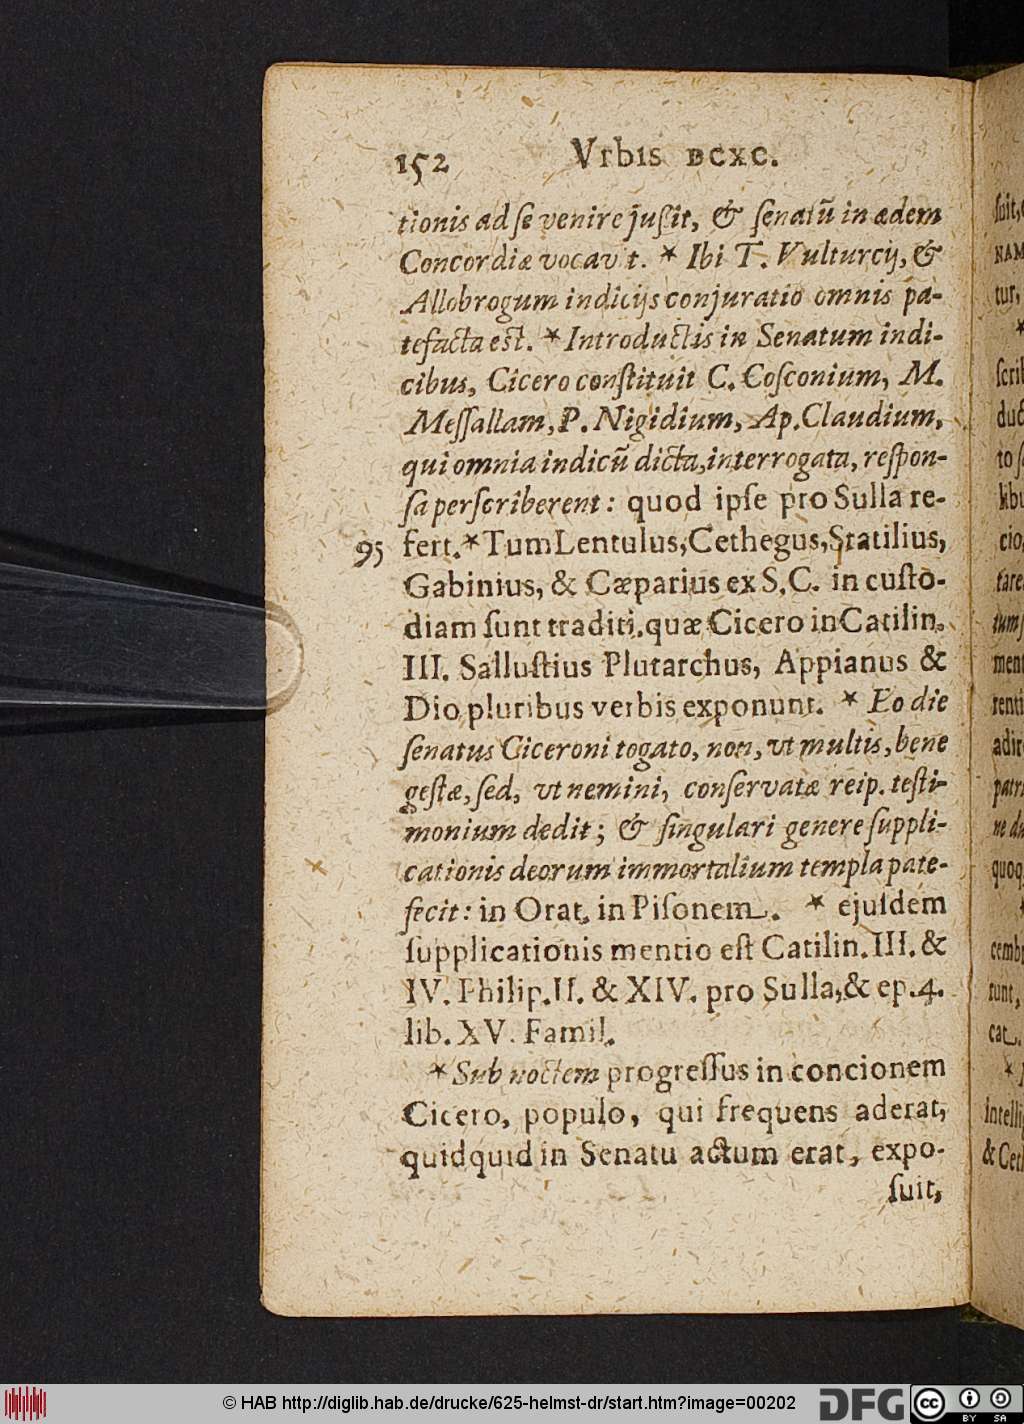 152 Vrbis DCXC.
tionis ad se venire jussit, & senatū in ædem
Concordiæ vocav t. * Ibi T. Vulturcij, &
Allobrogum indicijs conjuratio omnis pa-
tefacta est. * Introductis in Senatum indi-
cibus, Cicero constituit C. Cosconium, M.
Messallam, P. Nigidium, Ap. Claudium,
qui omnia indicū dicta, interrogata, respon-
sa perscriberent: quod ipse pro Sulla re-
95 fert. * Tum Lentulus, Cethegus, Statilius,
Gabinius, & Cæparius ex S. C. in custo-
diam sunt traditi. quæ Cicero in Catilin.
III. Sallustius Plutarchus, Appianus &
Dio pluribus verbis exponunt. * Eo die
senatus Ciceroni togato, non, vt multis, bene
gestæ, sed, vt nemini, conservatæ reip. testi-
monium dedit; & singulari genere suppli-
cationis deorum immortalium templa pate-
fecit: in Orat. in Pisonem. * ejusdem
supplicationis mentio est Catilin. III. &
IV. Philip. II. & XIV. pro Sulla, & ep. 4.
lib. XV. Famil.
* Sub noctem progressus in concionem
Cicero, populo, qui frequens aderat,
quidquid in Senatu actum erat, expo-
suit,
© HAB http://diglib.hab.de/drucke/625-helmst-dr/start.htm?image=00202 DFG cc BY SA